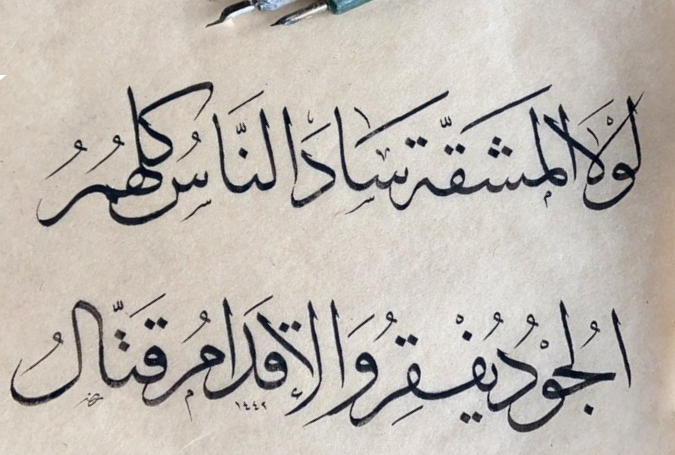 لَوْلَا الْمَشَقَّةُ سَادَ النَّاسُ كُلُّهُمُ
الْجُوْدُ يُفْقِرُ وَالْإِقْدَامُ قَتَّالُ
١٤٤٢